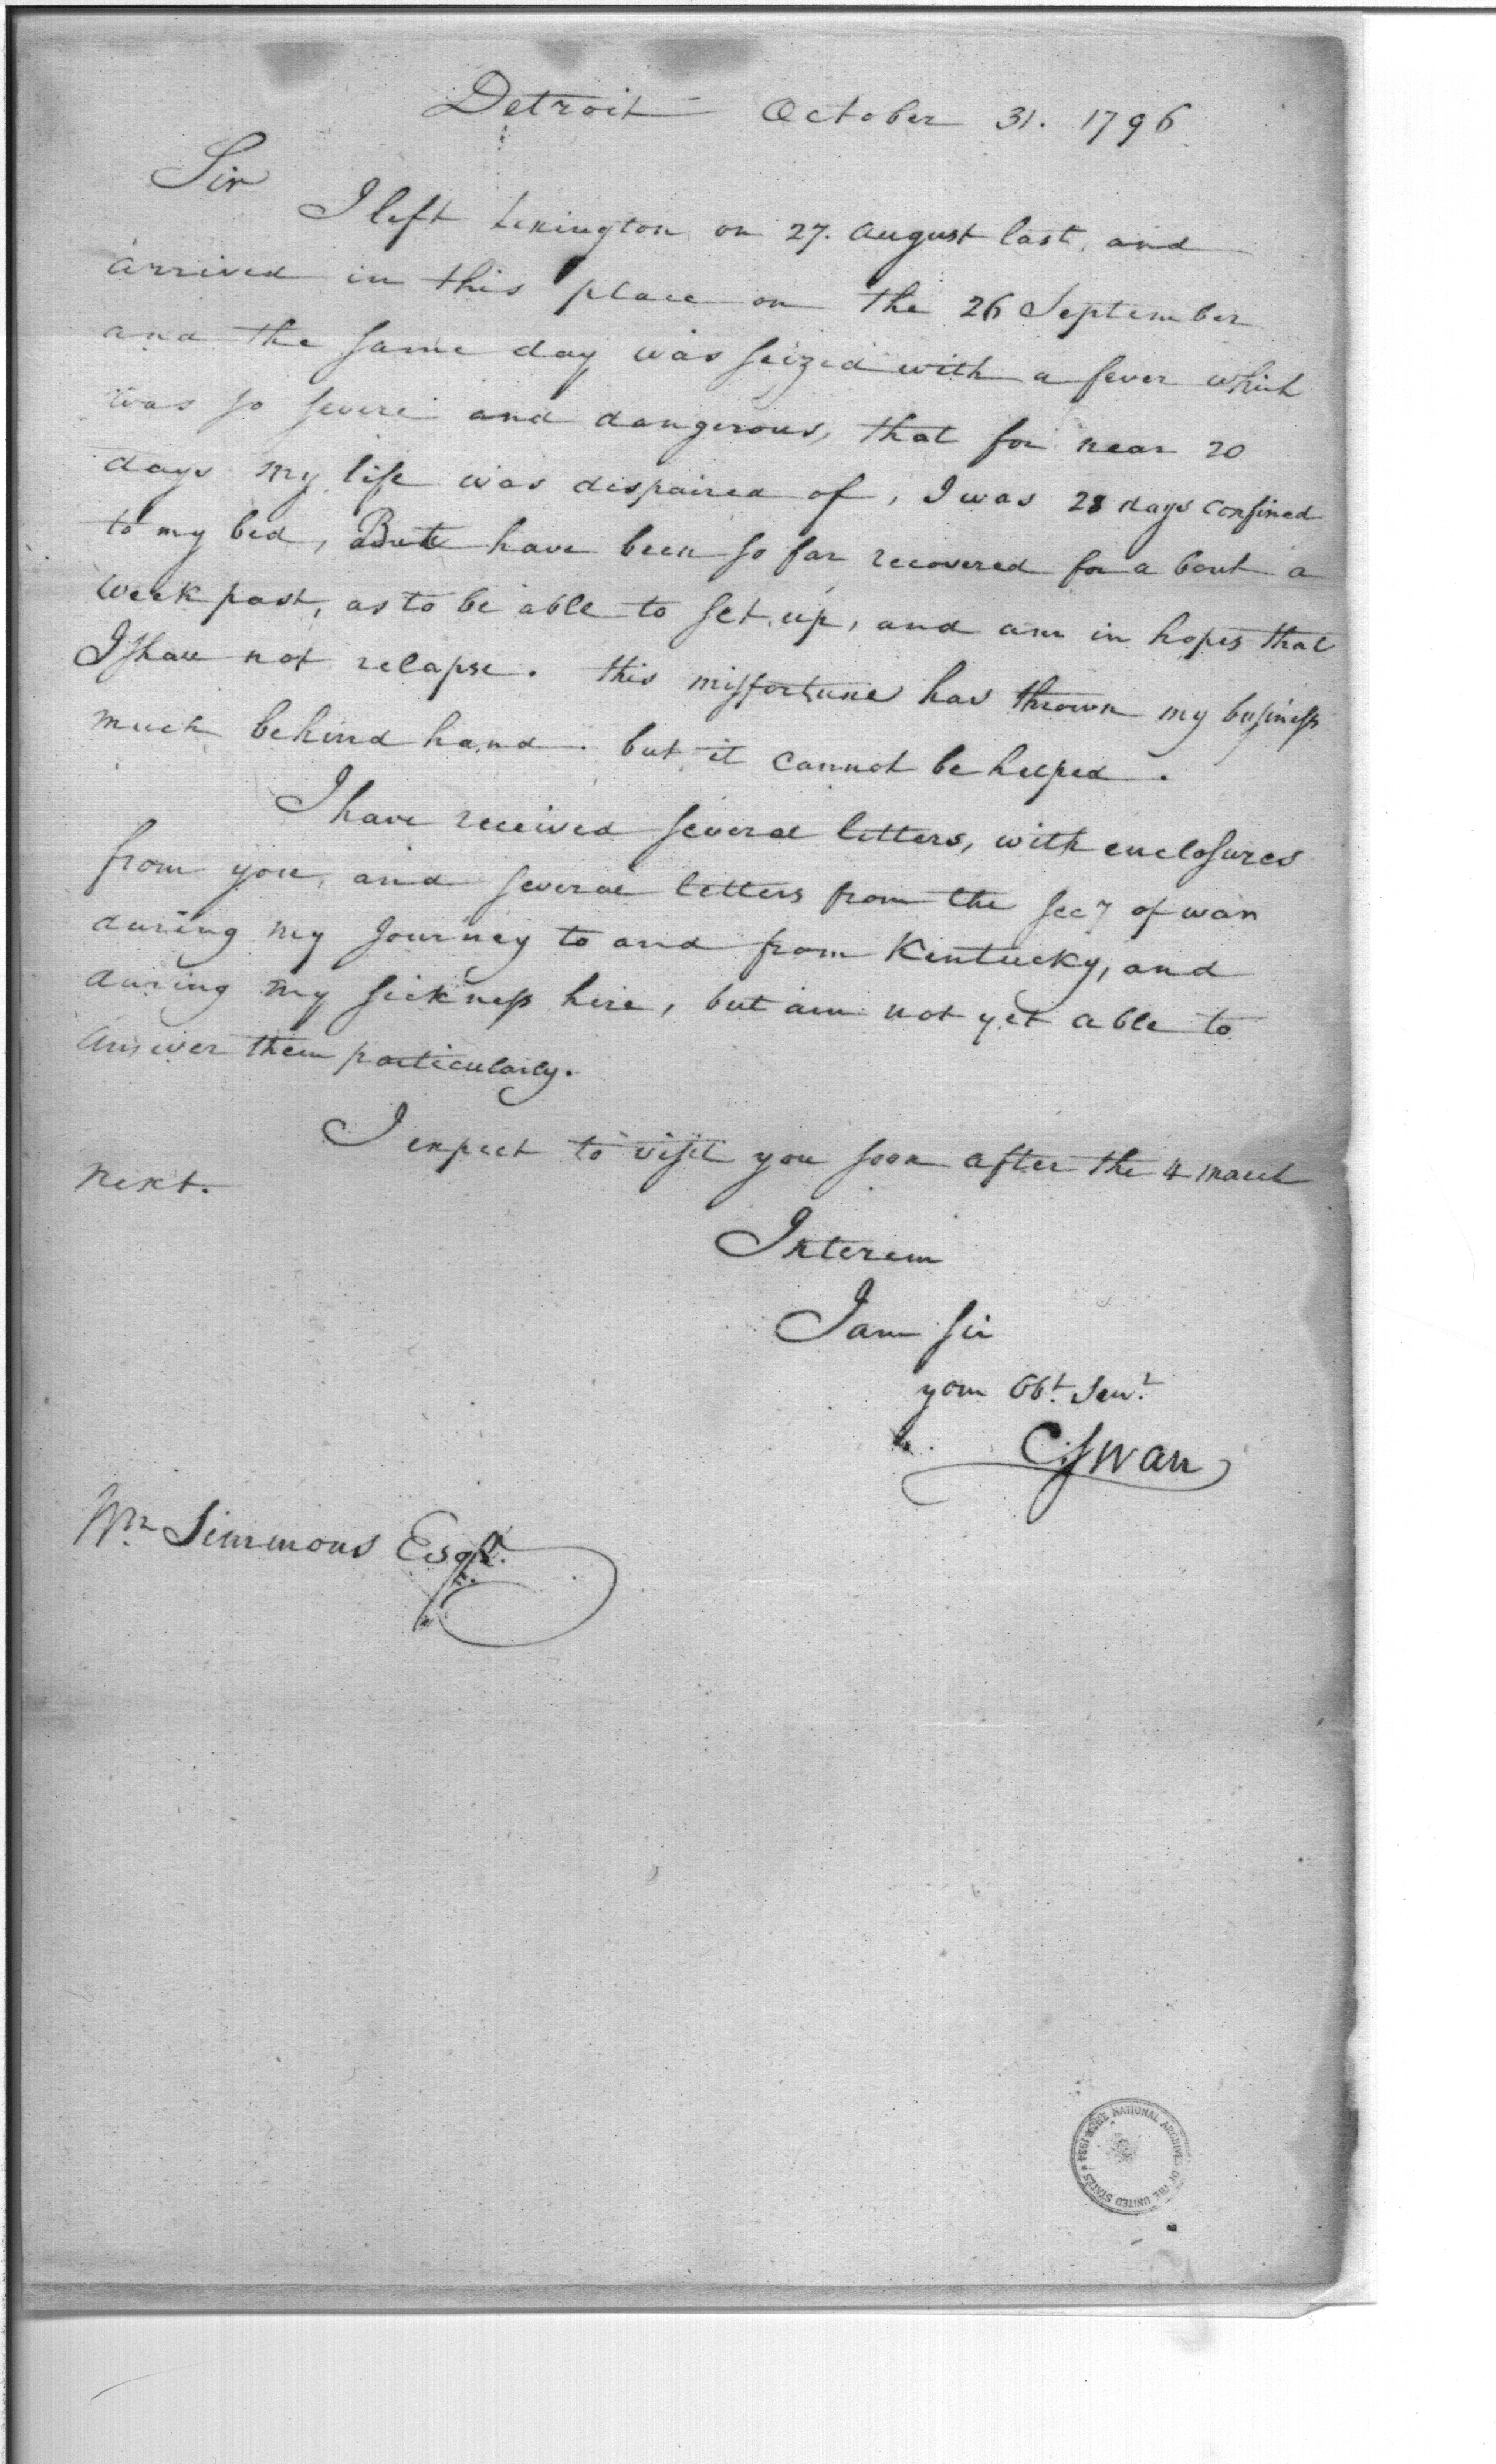 Detroit October 31. 1796
Sir
I left Lexington on 27. August last, and
arrived in this place on the 26 September
and the same day was seized with a fever which
was so severe and dangerous, that for near 20
days my life was despaired of, I was 28 days confined
to my bed, But have been so far recovered for a bout a
week past, as to be able to set up, and am in hopes that
I shall not relapse. this misfortune has thrown my business
much behind hand. but it cannot be helped.
I have received several letters, with enclosures
from you, and several letters from the Secy of war
during my Journey to and from Kentucky, and
during my sickness here, but am not yet able to
answer them particularly.
I expect to visit you soon after the 4 march
next.
Interim
I am Sir
your Obt. Servt.
C. Swan
Wm Simmons Esqr.
THE NATIONAL ARCHIVES OF THE UNITED STATES 1934